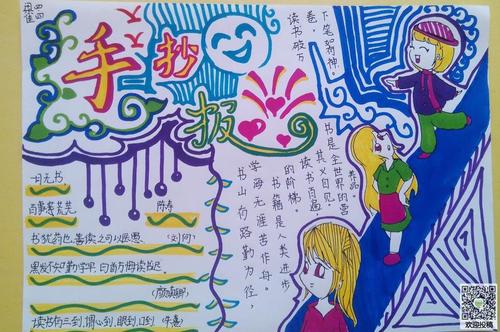 手抄报
读书破万
卷,
下笔如有神。
书是全世界的营
养品
读书百遍,
其义自见。
书籍是人类进步
的阶梯。
学海无涯苦作舟。
书山有路勤为径,
一日无书
百事荒芜
陈寿
书犹药也,善读之可以医愚。
(刘向)
黑发不知勤学早,白首方悔读书迟。
(颜真卿)
读书有三到,谓心到,眼到,口到
(朱熹)